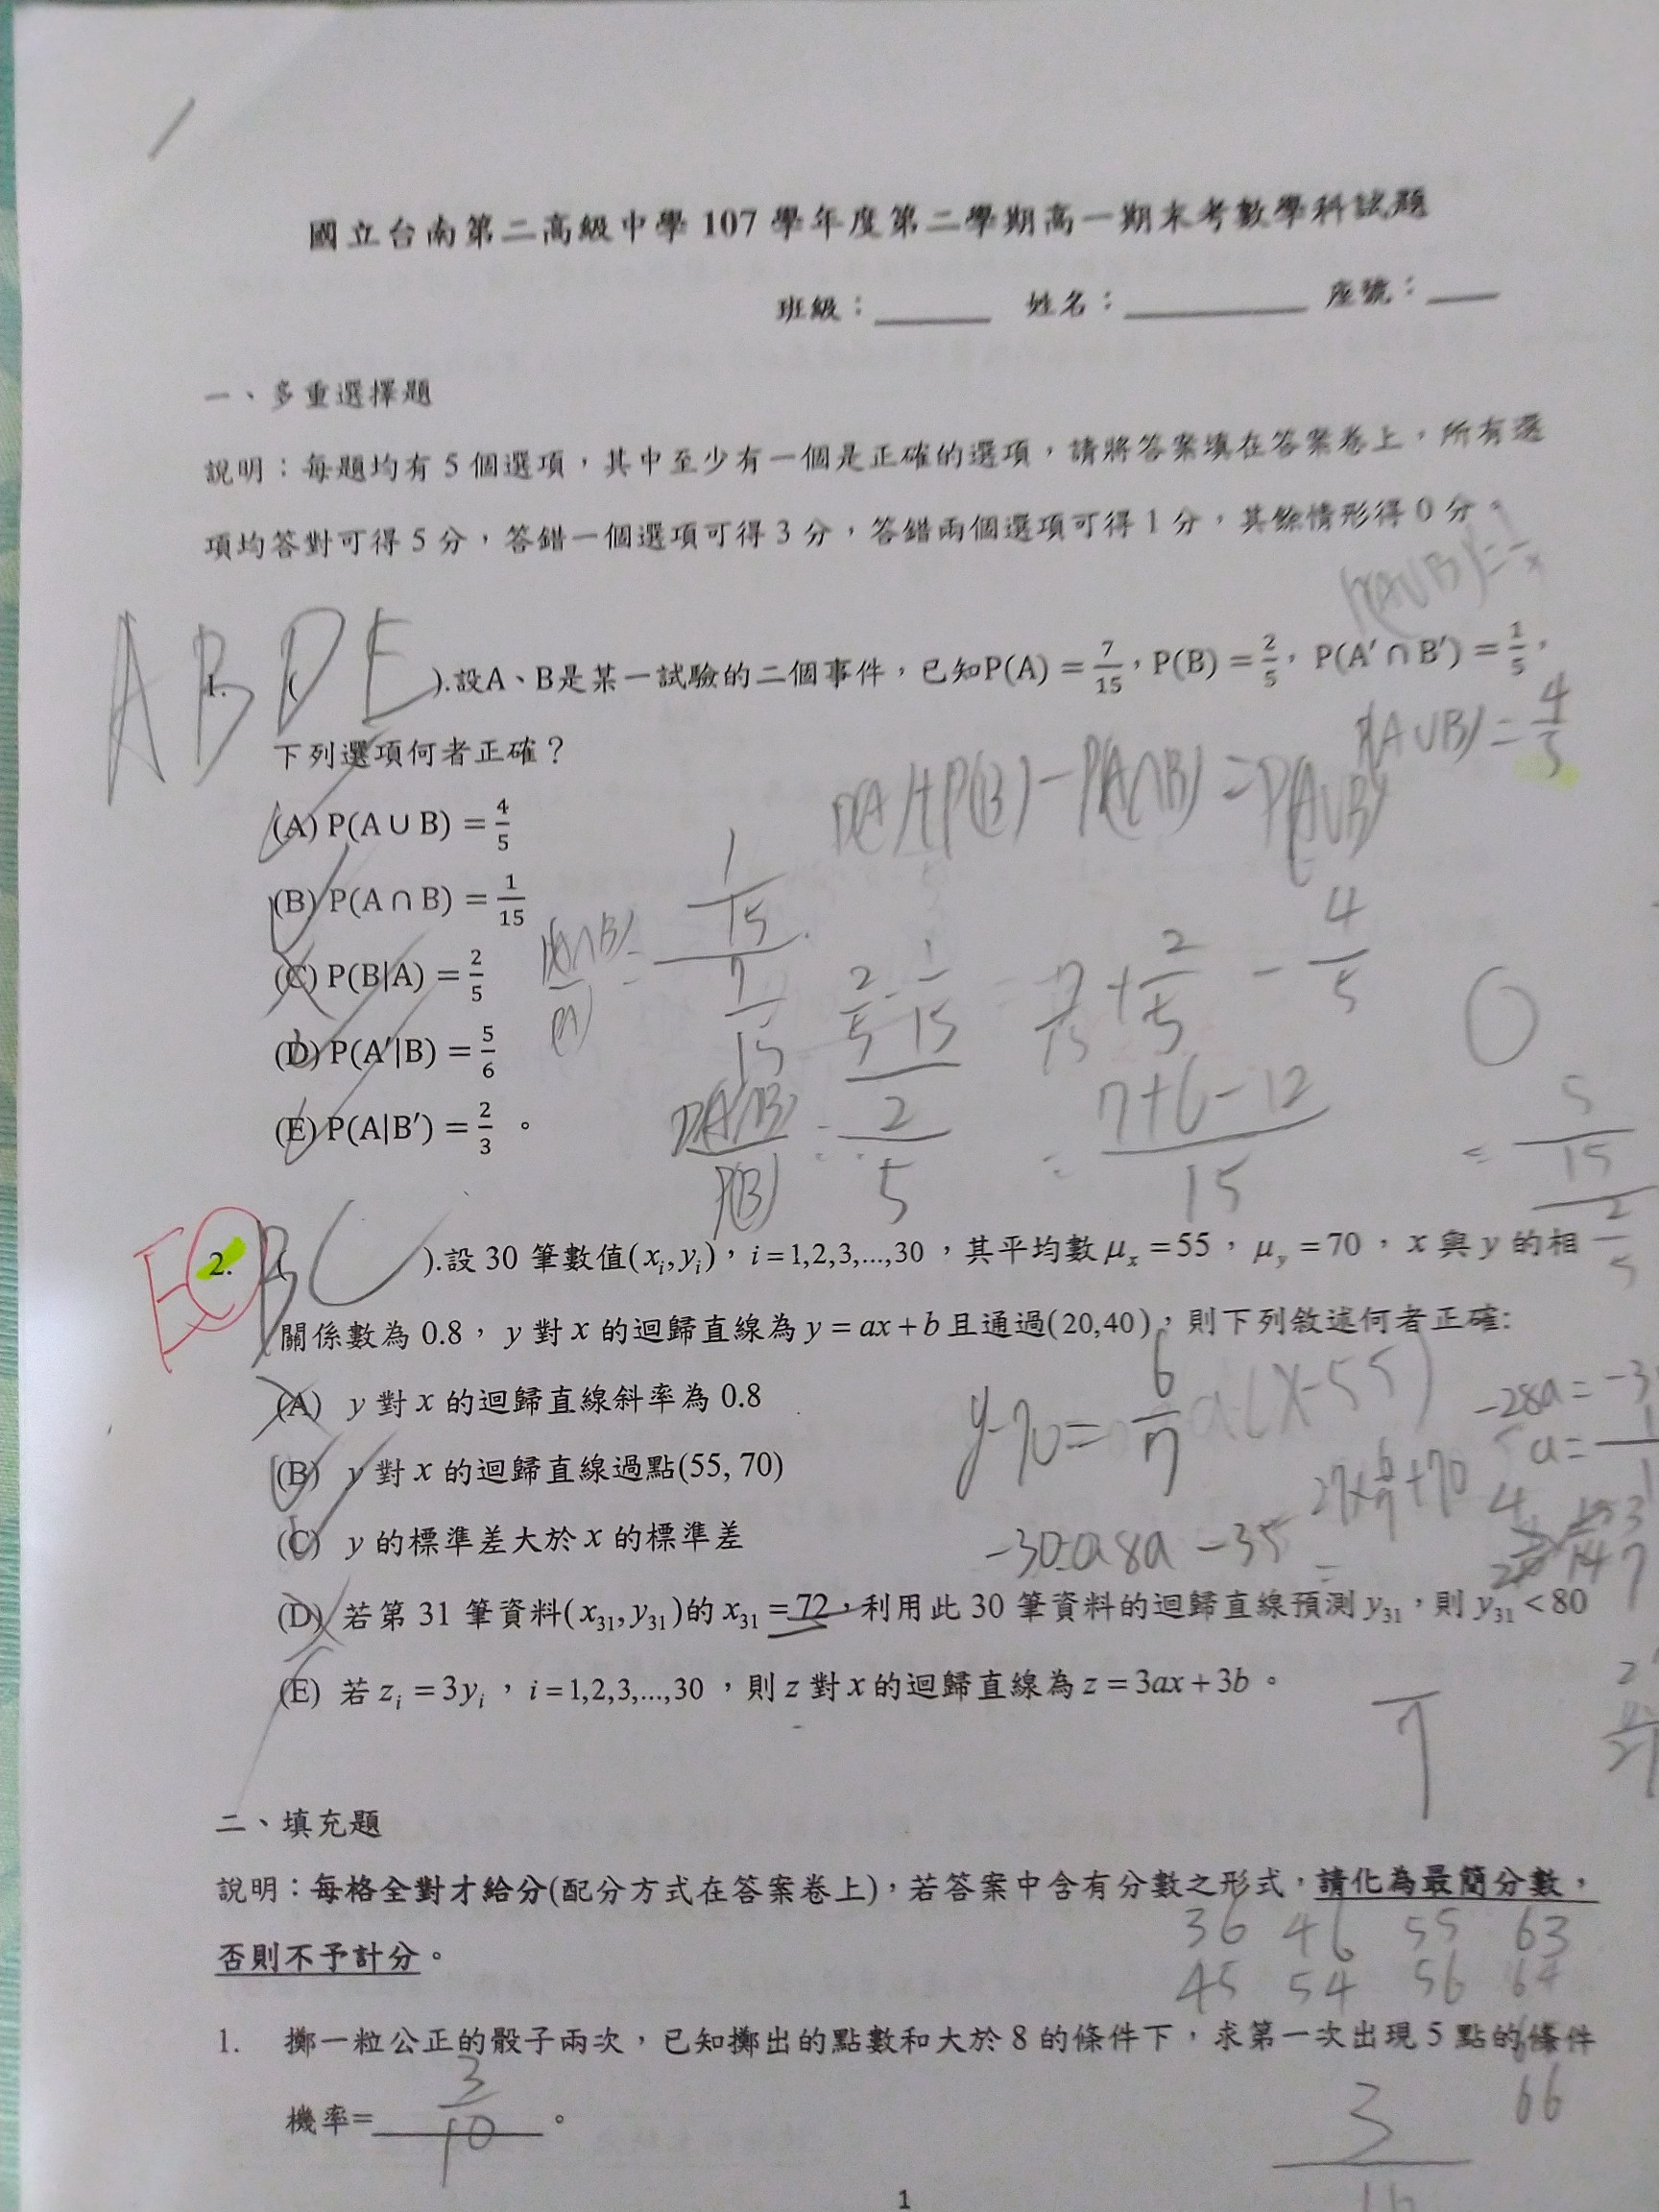 國立台南第二高級中學 107 學年度第二學期高一期末考數學科試題
班級：______ 姓名：__________ 座號：____
一、多重選擇題
說明：每題均有 5 個選項，其中至少有一個是正確的選項，請將答案填在答案卷上，所有選
項均答對可得 5 分，答錯一個選項可得 3 分，答錯兩個選項可得 1 分，其餘情形得 0 分。
A B D E
1. ( ).設A、B是某一試驗的二個事件，已知P(A) = 7/15，P(B) = 2/5，P(A′ ∩ B′) = 1/5，
下列選項何者正確？
P(A∪B) = 4/5
P(A)+P(B)-P(A∩B)=P(A∪B)
(A) P(A ∪ B) = 4/5
(B) P(A ∩ B) = 1/15
(C) P(B|A) = 2/5
(D) P(A′|B) = 5/6
(E) P(A|B′) = 2/3 。
7/15 + 2/5 - 4/5
7+6-12
15
E B C
2. ( ).設 30 筆數值(xᵢ, yᵢ)，i = 1,2,3,...,30，其平均數 μₓ = 55，μᵧ = 70，x 與 y 的相
關係數為 0.8，y 對 x 的迴歸直線為 y = ax + b 且通過(20,40)，則下列敘述何者正確:
(A) y 對 x 的迴歸直線斜率為 0.8
(B) y 對 x 的迴歸直線過點(55, 70)
(C) y 的標準差大於 x 的標準差
(D) 若第 31 筆資料(x₃₁, y₃₁)的 x₃₁ = 72，利用此 30 筆資料的迴歸直線預測 y₃₁，則 y₃₁ < 80
(E) 若 zᵢ = 3yᵢ，i = 1,2,3,...,30，則 z 對 x 的迴歸直線為 z = 3ax + 3b。
y-70= 6/7 (x-55)
二、填充題
說明：每格全對才給分(配分方式在答案卷上)，若答案中含有分數之形式，請化為最簡分數，
否則不予計分。
36 46 55 63
45 54 56 64
1. 擲一粒公正的骰子兩次，已知擲出的點數和大於 8 的條件下，求第一次出現 5 點的條件
機率= 3/10 。
66
1